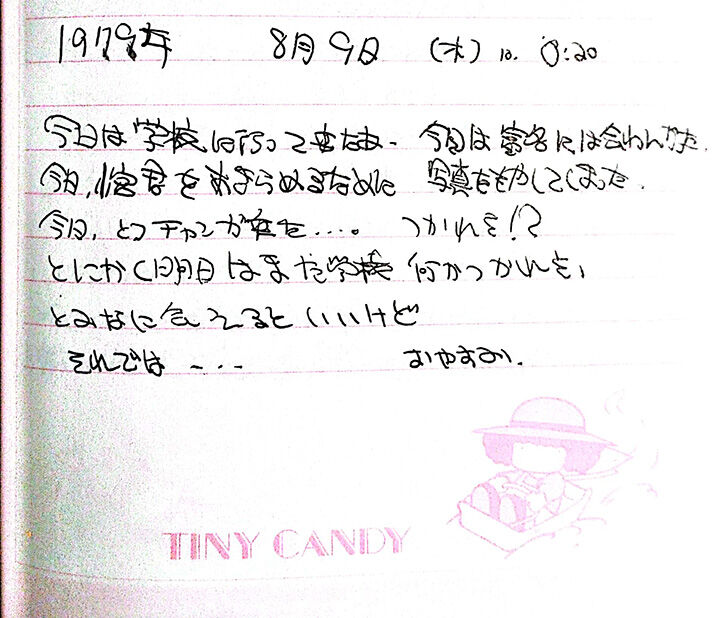 1979年 8月9日 (木) P. 8:20
今日は学校に行って来たわ. 今日は には会わんかった.
今日, 君をあきらめるために 写真をもやしてしまった.
今日, とコチャンが来た....。 つかれを!?
とにかく明日はまた学校 何かつかれを,
とみなに会えるといいけど
それでは - - - おやすみ.
TINY CANDY